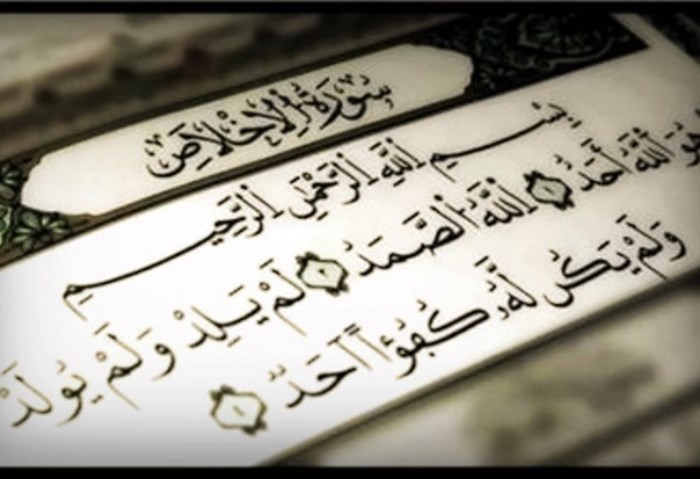 سُورَةُ الإِخْلَاصِ
بِسْمِ اللَّهِ الرَّحْمَٰنِ الرَّحِيمِ
هُوَ اللَّهُ أَحَدٌ ۝ اللَّهُ الصَّمَدُ ۝ لَمْ يَلِدْ وَلَمْ يُولَدْ
وَلَمْ يَكُن لَّهُ كُفُوًا أَحَدٌ